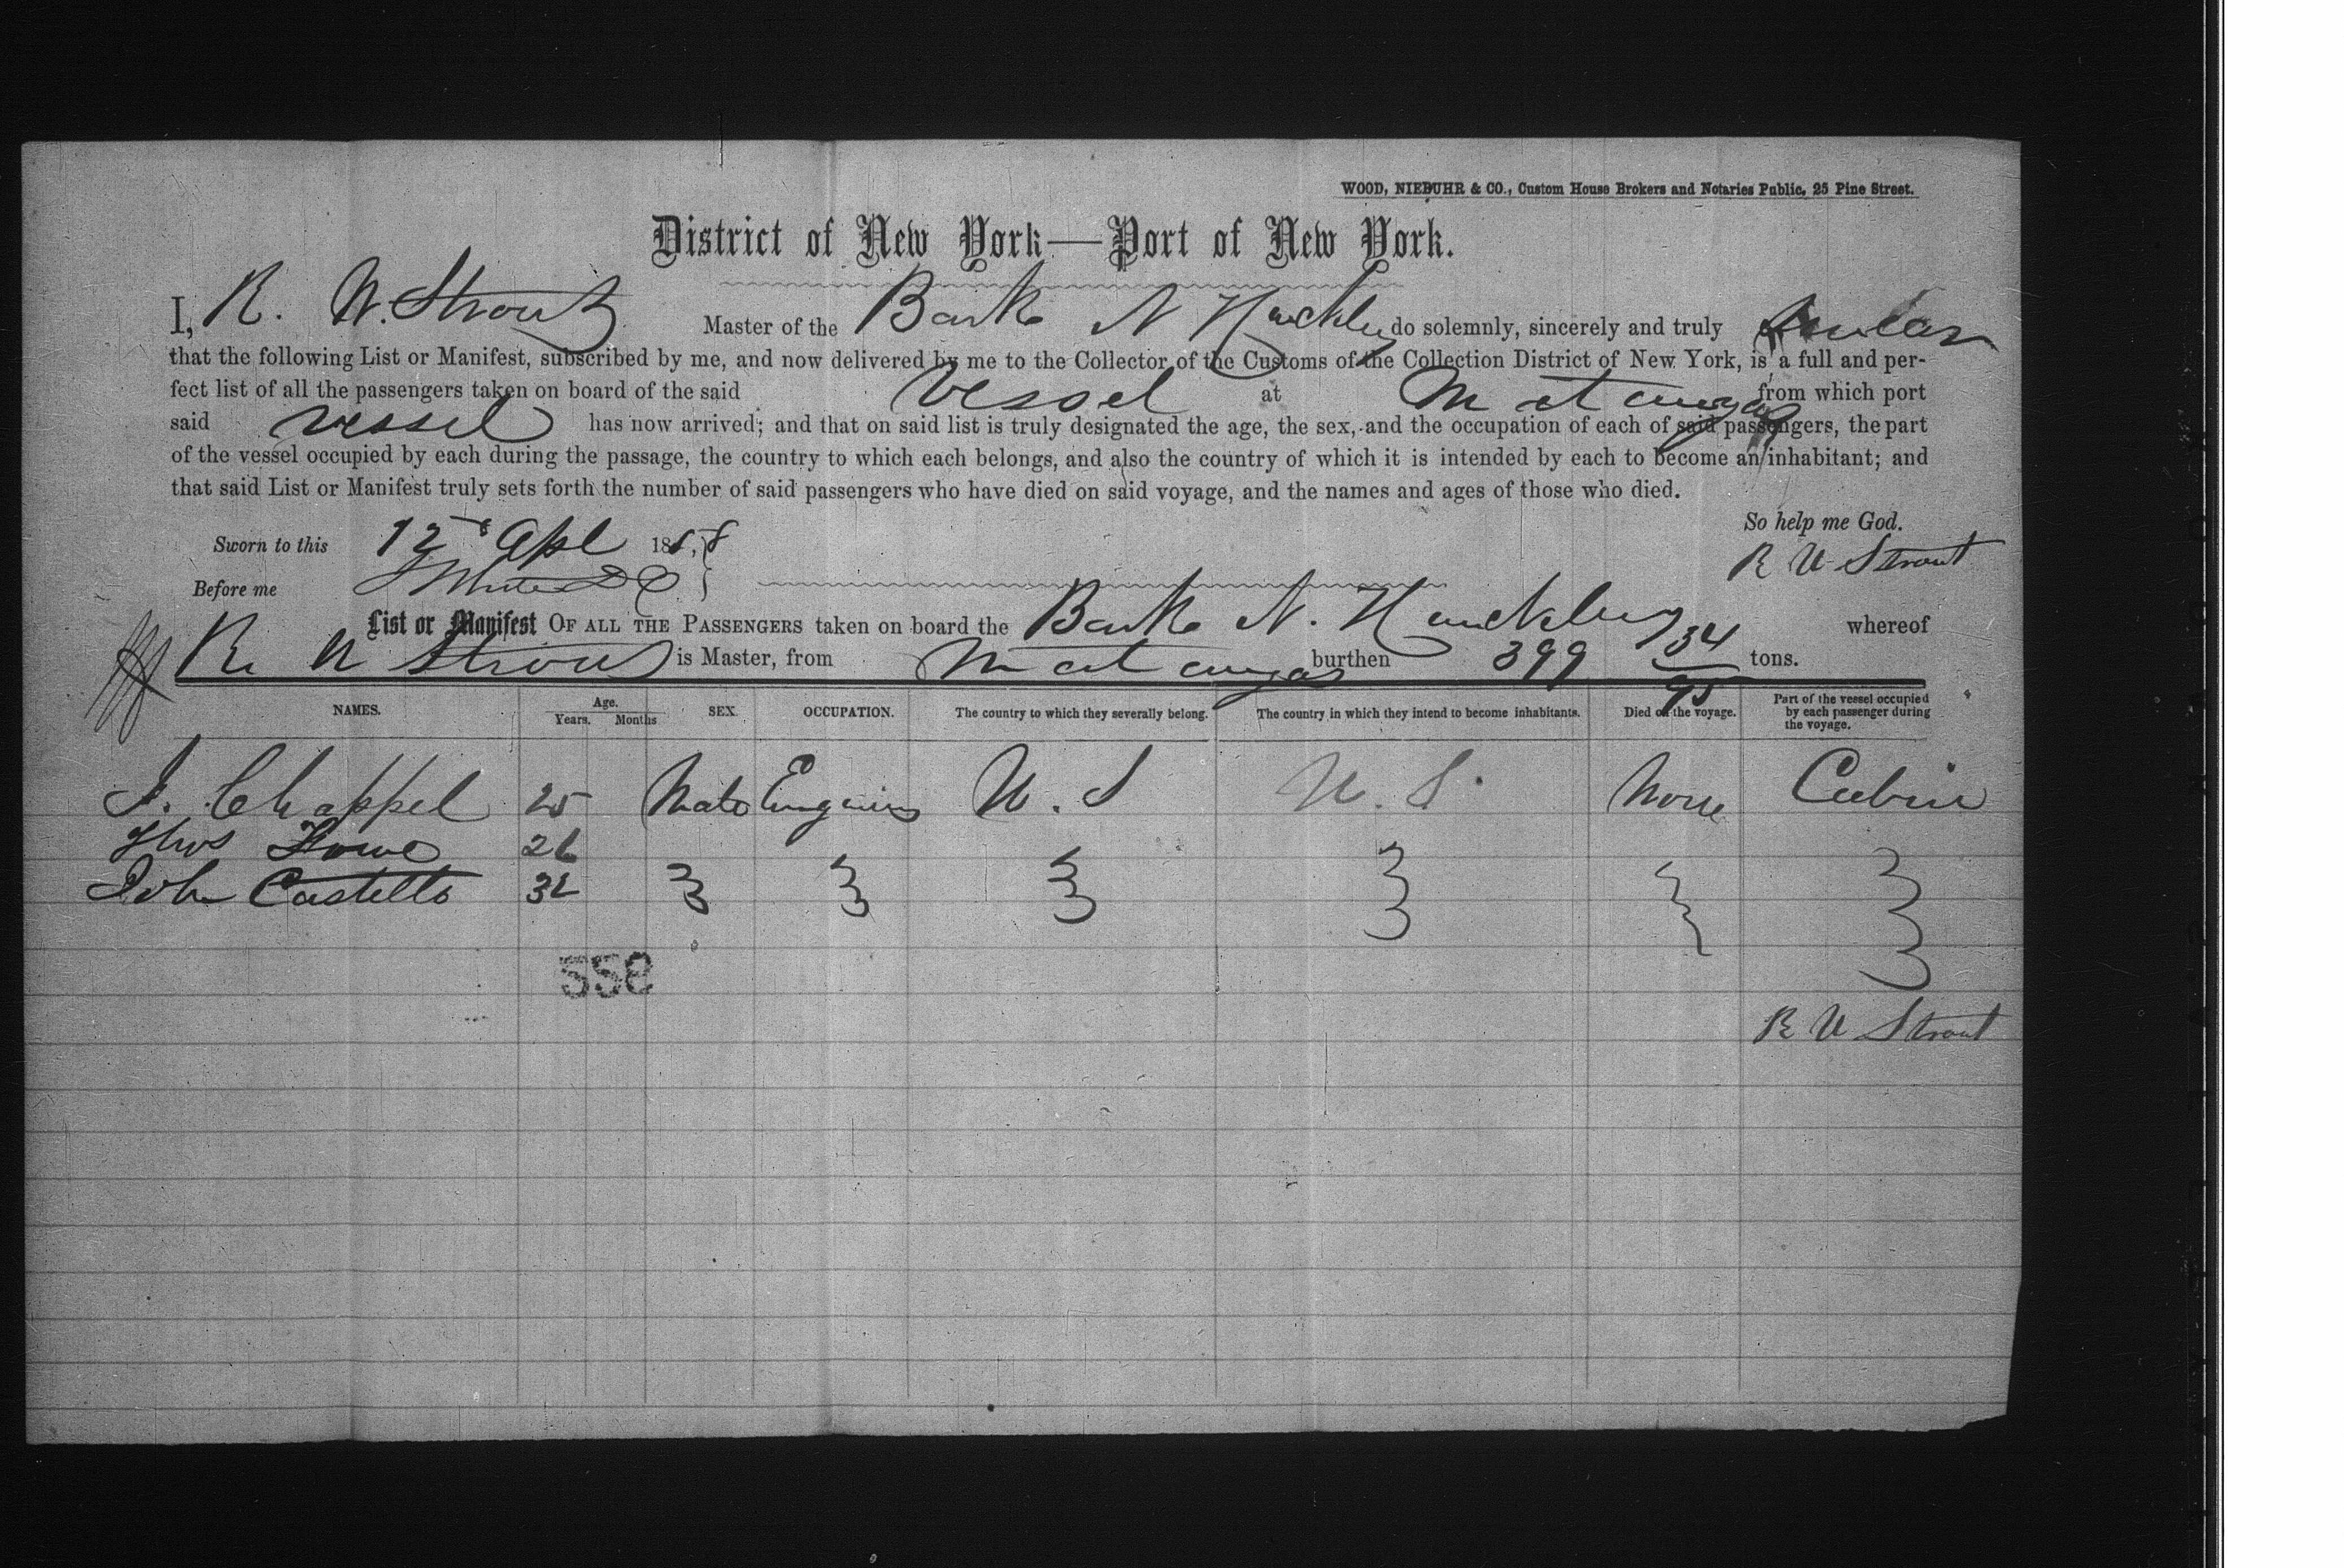 WOOD, NIEBUHR & CO., Custom House Brokers and Notaries Public, 25 Pine Street.
District of New York—Port of New York.
I, R. W. Strout Master of the Bark N Huckley do solemnly, sincerely and truly swear
that the following List or Manifest, subscribed by me, and now delivered by me to the Collector of the Customs of the Collection District of New York, is a full and per-
fect list of all the passengers taken on board of the said Vessel at Matanzas from which port
said vessel has now arrived; and that on said list is truly designated the age, the sex, and the occupation of each of said passengers, the part
of the vessel occupied by each during the passage, the country to which each belongs, and also the country of which it is intended by each to become an inhabitant; and
that said List or Manifest truly sets forth the number of said passengers who have died on said voyage, and the names and ages of those who died.
So help me God.
Sworn to this 12 Apl 1858
R W Strout
Before me
List or Manifest OF ALL THE PASSENGERS taken on board the Bark N. whereof
R W Strout is Master, from Matanzas burthen 399 34/95 tons.
NAMES. Age. Years. Months SEX. OCCUPATION. The country to which they severally belong. The country in which they intend to become inhabitants. Died on the voyage. Part of the vessel occupied by each passenger during the voyage.
J. Chappel 25 Male U. S U. S. None Cabin
Thos 26
John Castello 32
558
R W Strout